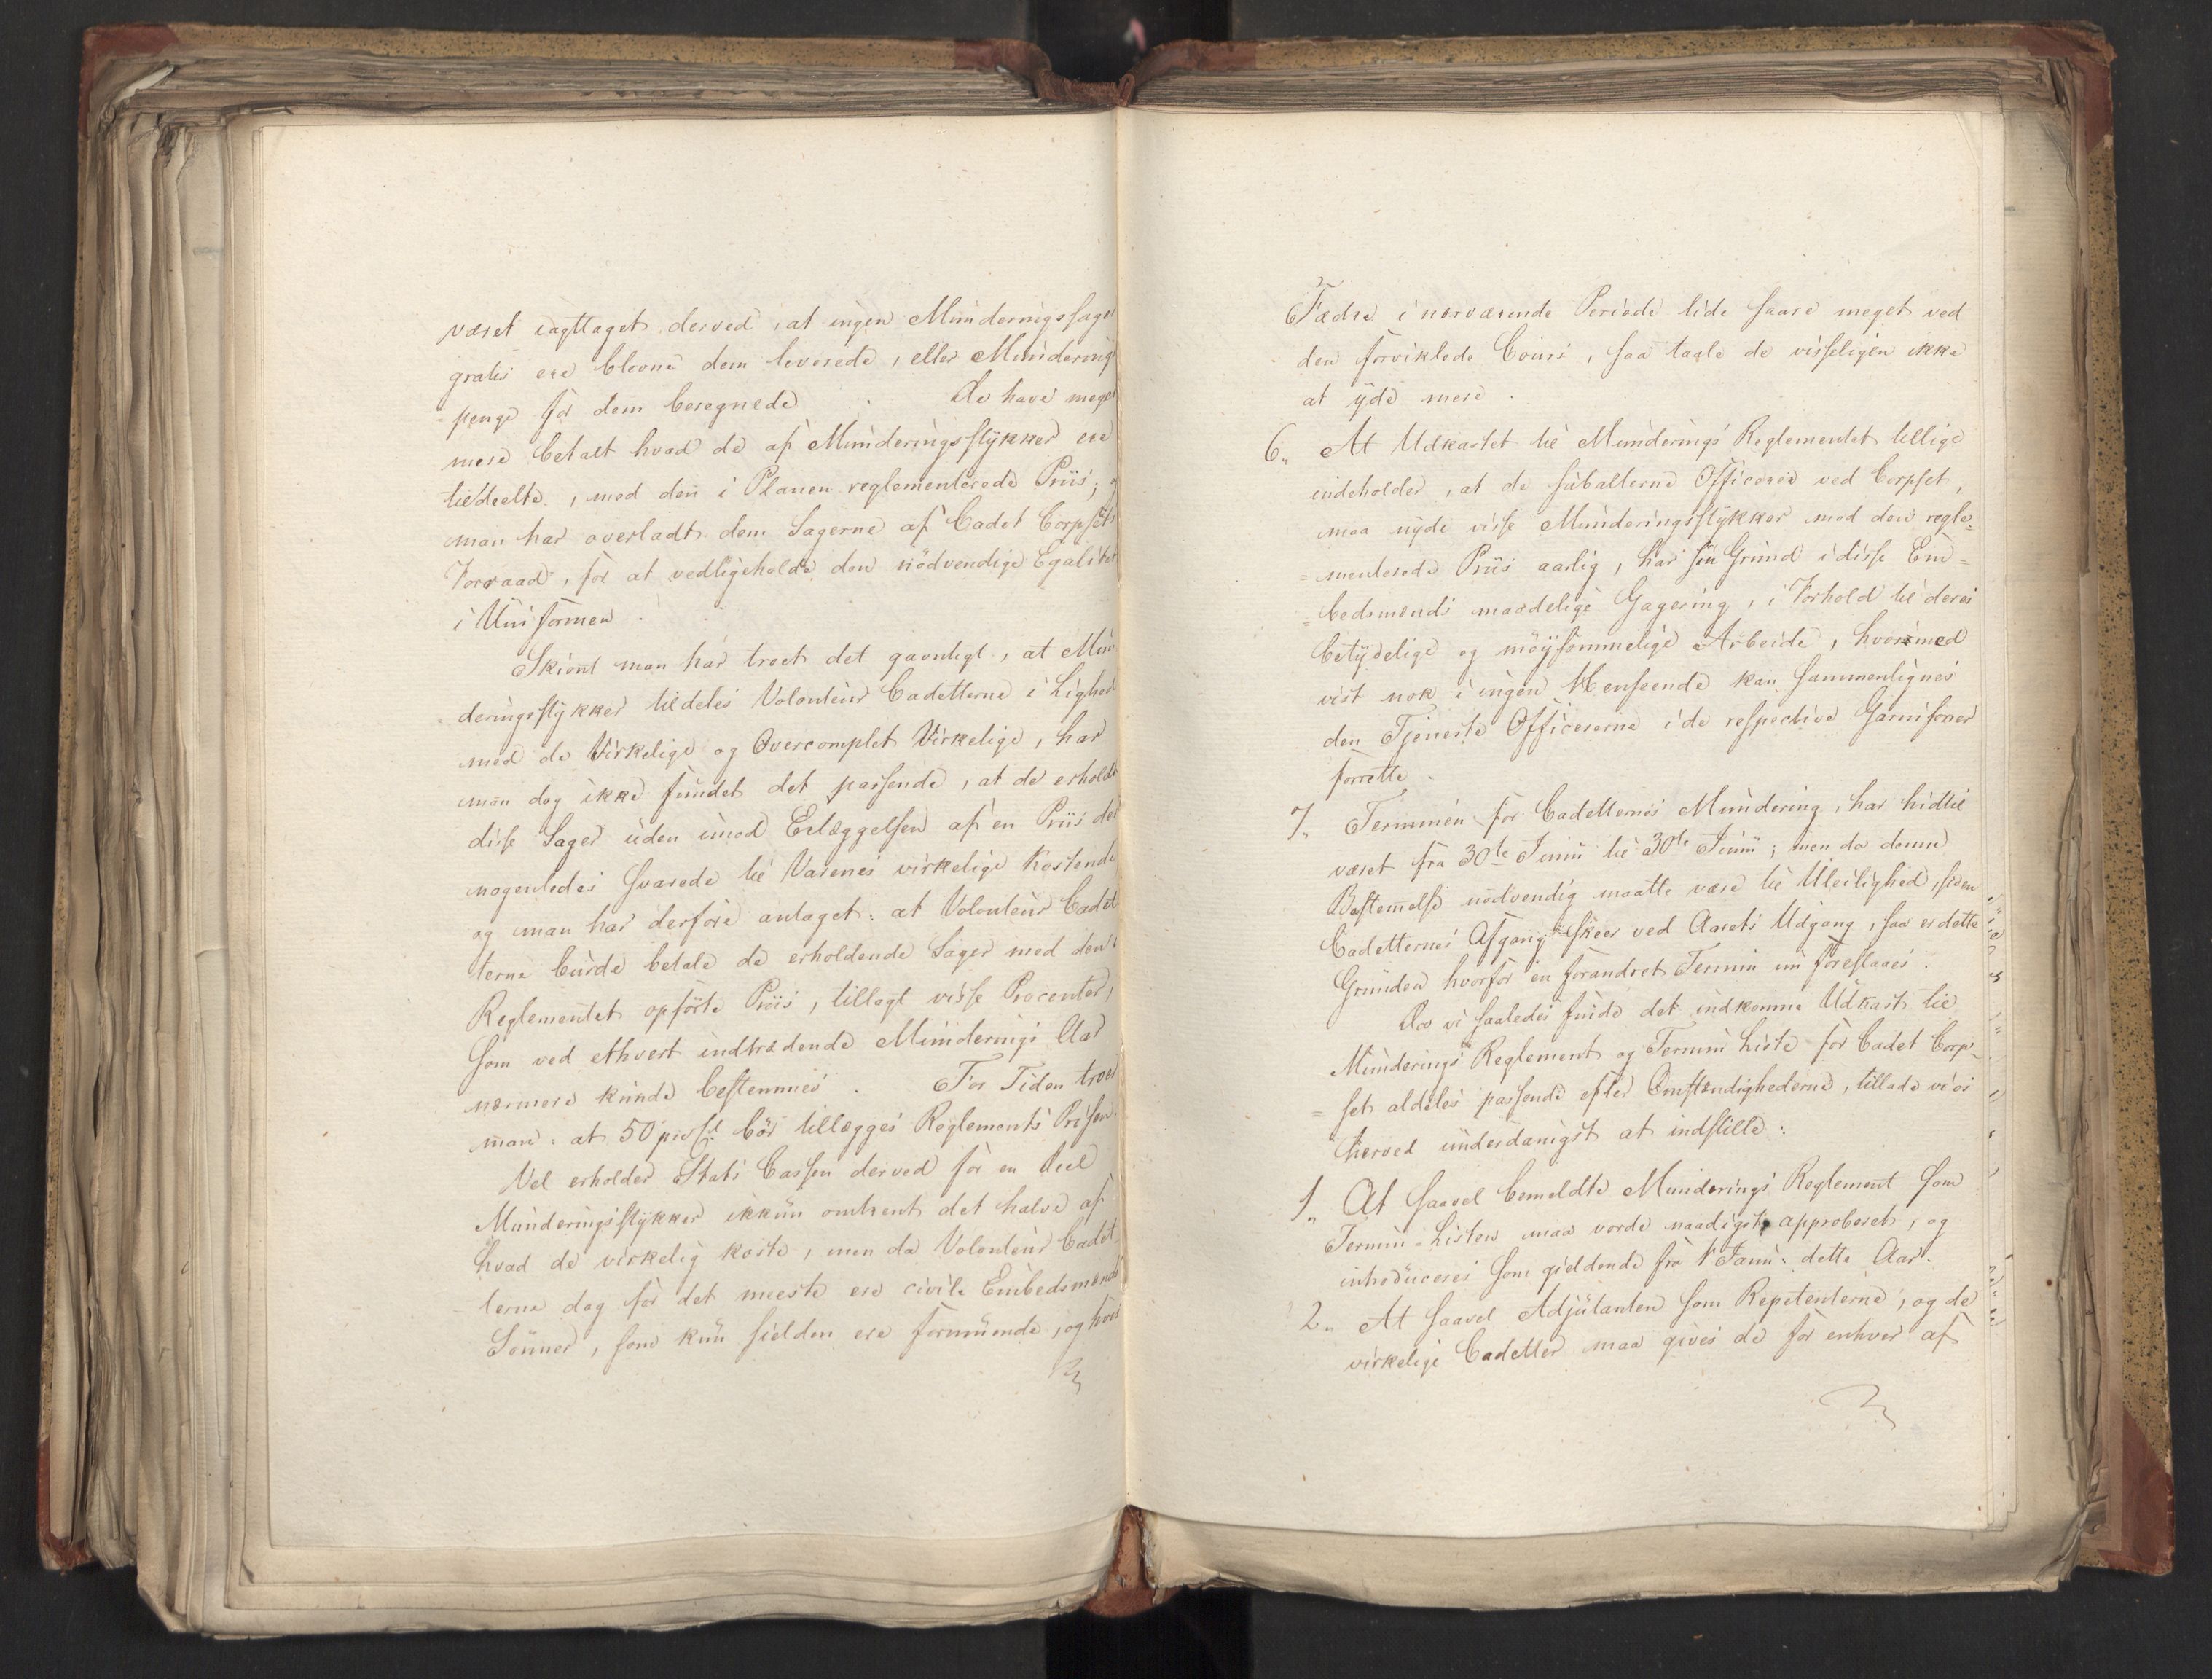 været iagttaget derved, at ingen Munderingssager
gratis ere blevne dem leverede, eller Munderings
penge for dem beregnede. De have meget
mere betalt hvad de af Munderingsstykker ere
tildeelte, med den i Planen reglementerede Priis; og
man har overladt dem Sagerne af Cadet Corpsets
Forraad, for at vedligeholde den nödvendige Egalitet
i Uniformen.
Skiönt man har troet det gavnligt, at Mun
deringsstykker tildeles Volonteur Cadetterne i Lighed
med de Virkelige og Overcomplet Virkelige, har
man dog ikke fundet det passende, at de erholdt
disse Sager uden imod Erlæggelsen af en Priis der
nogenledes svarede til Varenes virkelige Kostende
og man har derföre antaget: at Volonteur Cadet
terne burde betale de erholdende Sager med den i
Reglementet opförte Priis, tillagt visse Procenter,
som ved ethvert indtrædende Munderings Aar
nærmere kunde bestemmes. For Tiden troer
man: at 50 prCt bör tillægges Reglements Prisen.
Vel erholder Stats Cassen derved for en Deel
Munderingsstykker ikkun omtrent det halve af
hvad de virkelig koste, men da Volonteur Cadet
terne dog for det meeste ere civile Embedsmænds
Sönner, som kun sielden ere formuende, og hvis
Fædre i nærværende Periode lide saare meget ved
den forviklede Cours, saa taale de visseligen ikke
at yde mere.
6. At Udkastet til Munderings Reglementet tillige
indeholder, at de subalterne Officerer ved Corpset,
maa nyde visse Munderingsstykker mod den regle=
=menterede Priis aarlig, har sin Grund i disse Em=
=bedsmænds maadelige Gagering, i Forhold til deres
betydelige og möysommelige Arbeide, hvormed
vist nok i ingen Henseende kan sammenlignes
den Tjeneste Officererne i de respective Garnisoner
forrette.
7. Terminen for Cadetternes Mundering, har hidtil
været fra 30te Junii til 30te Junii; men da denne
Bestemmelse nödvendig maatte være til Uleilighed, siden
Cadetternes Afgang skeer ved Aarets Udgang, saa er dette
Grunden hvorfor en forandret Termin nu foreslaaes.
Da vi saaledes finde det indkomne Udkast til
Munderings Reglement og Termin Liste for Cadet Corp=
=set aldeles passende efter Omstændighederne, tillade vi os
herved underdanigst at indstille:
1. At saavel bemeldte Munderings Reglement som
Termin=Listen maa vorde naadigst approberet, og
introduceres som gieldende fra 1 Janu: dette Aar.
2. At saavel Adjutanten som Repetenterne, og de
virkelige Cadetter maa gives de for enhver af